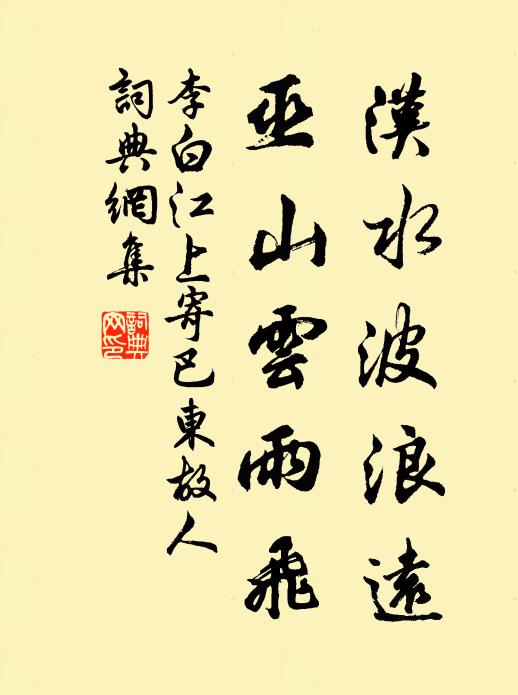 漢水波浪遠
巫山雲雨飛
李白江上寄巴東故人
詞典網集
詞典
网印